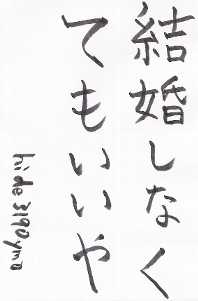 結婚しなく
てもいいや
hide3190ymo